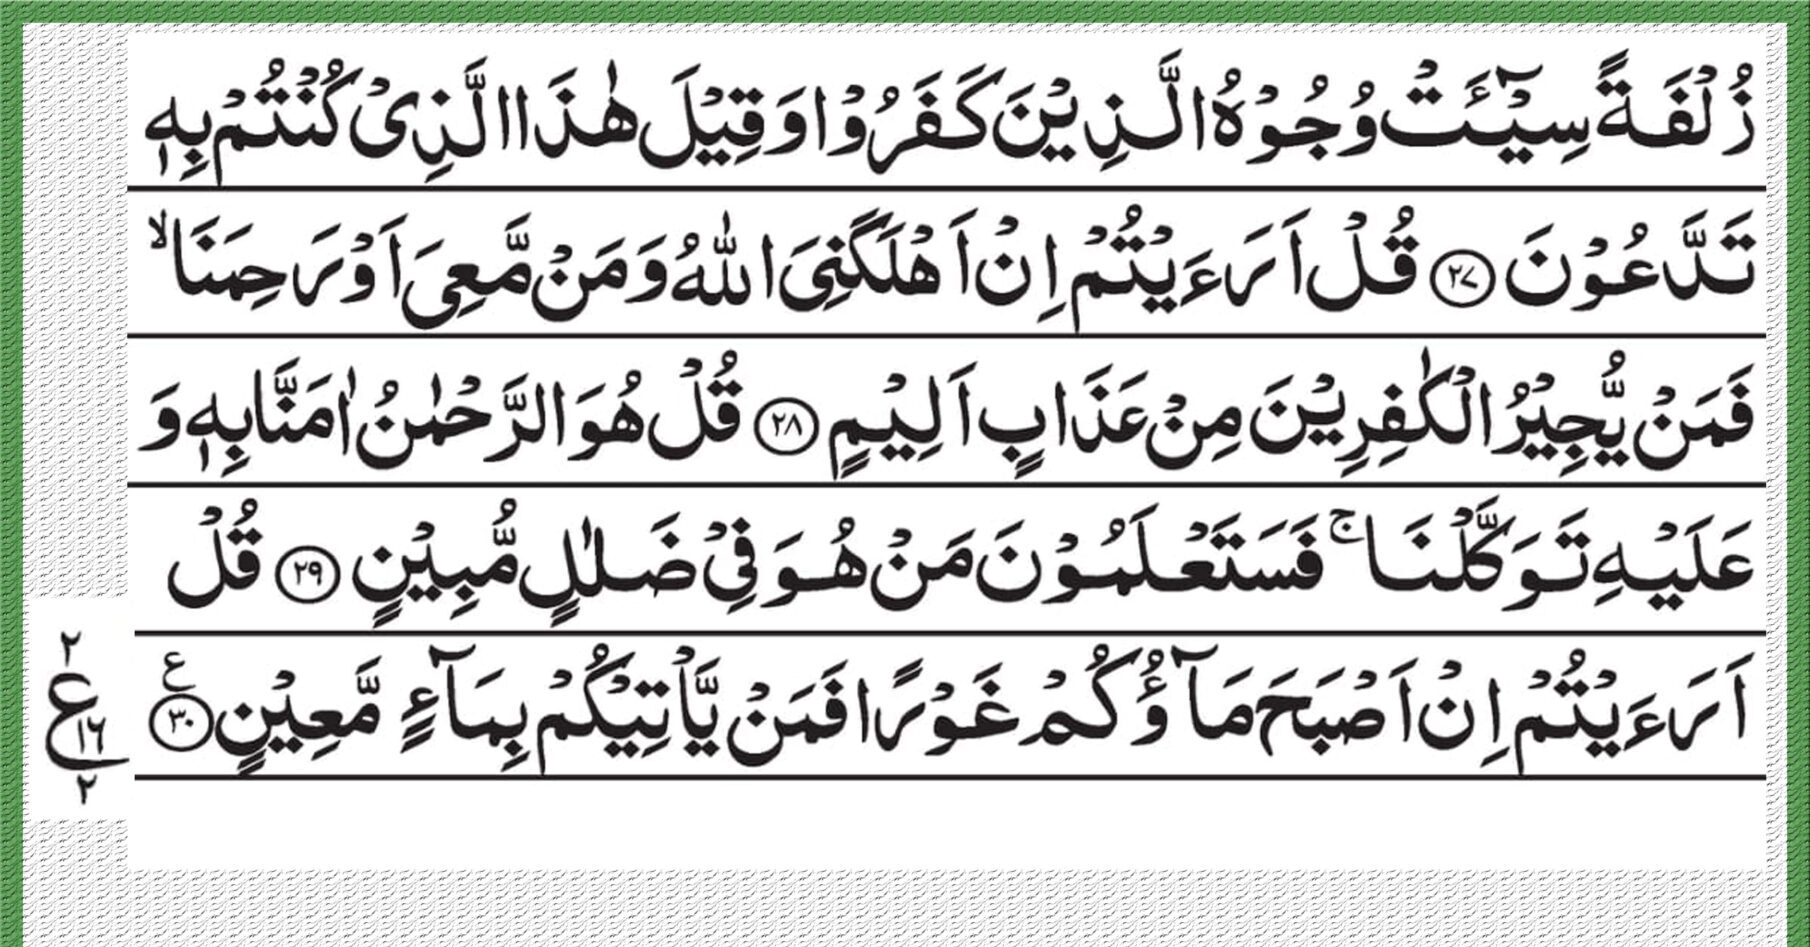 زُلْفَةً سِيْٓـَٔتْ وُجُوْهُ الَّذِيْنَ كَفَرُوْا وَقِيْلَ هٰذَا الَّذِيْ كُنْتُمْ بِهٖ
تَدَّعُوْنَ ۝٢٧ قُلْ اَرَءَيْتُمْ اِنْ اَهْلَكَنِيَ اللّٰهُ وَمَنْ مَّعِيَ اَوْ رَحِمَنَا ۙ
فَمَنْ يُّجِيْرُ الْكٰفِرِيْنَ مِنْ عَذَابٍ اَلِيْمٍ ۝٢٨ قُلْ هُوَ الرَّحْمٰنُ اٰمَنَّا بِهٖ وَ
عَلَيْهِ تَوَكَّلْنَا ۚ فَسَتَعْلَمُوْنَ مَنْ هُوَ فِيْ ضَلٰلٍ مُّبِيْنٍ ۝٢٩ قُلْ
اَرَءَيْتُمْ اِنْ اَصْبَحَ مَآؤُكُمْ غَوْرًا فَمَنْ يَّاْتِيْكُمْ بِمَآءٍ مَّعِيْنٍ ۝٣٠ ع
٢
ع
١٦
٢